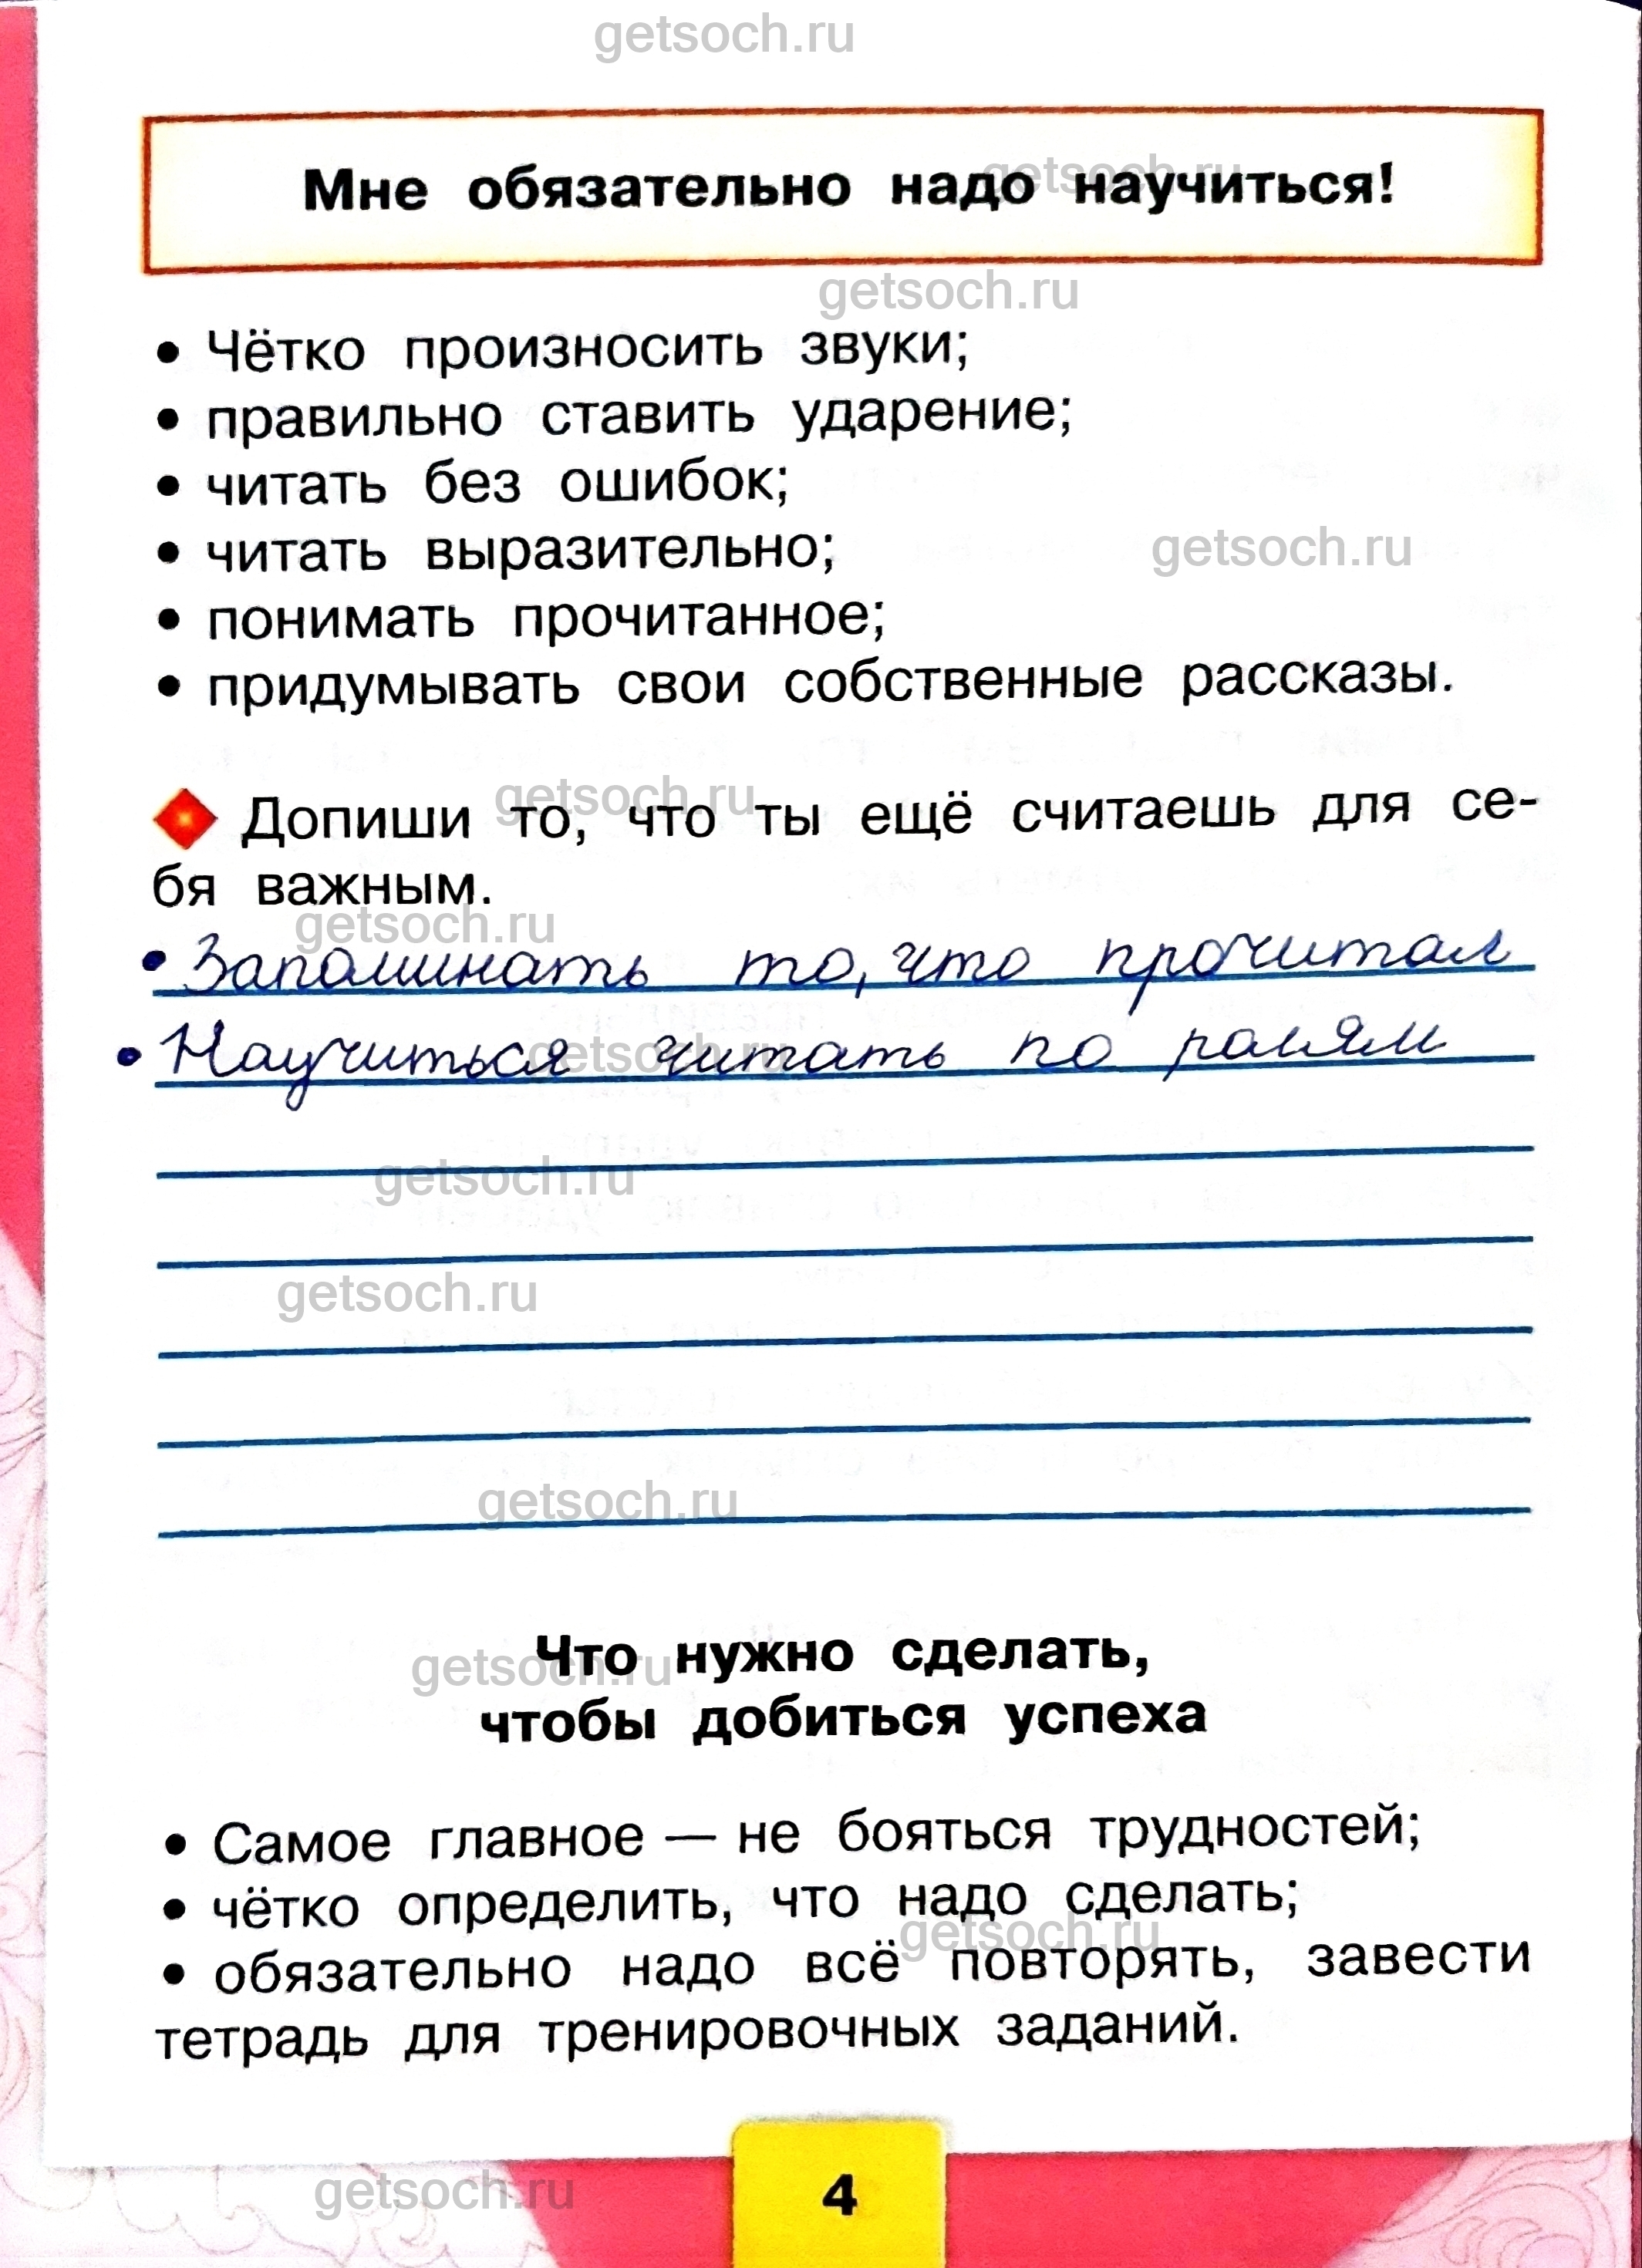 getsoch.ru
Мне обязательно надо научиться!
getsoch.ru
getsoch.ru
• Чётко произносить звуки;
• правильно ставить ударение;
• читать без ошибок;
• читать выразительно;
getsoch.ru
• понимать прочитанное;
• придумывать свои собственные рассказы.
getsoch.ru
Допиши то, что ты ещё считаешь для се-
бя важным.
getsoch.ru
• Запоминать то, что прочитал
• Научиться читать по ролям
getsoch.ru
getsoch.ru
getsoch.ru
getsoch.ru
Что нужно сделать,
getsoch.ru
чтобы добиться успеха
• Самое главное — не бояться трудностей;
• чётко определить, что надо сделать;
getsoch.ru
• обязательно надо всё повторять, завести
тетрадь для тренировочных заданий.
getsoch.ru
4